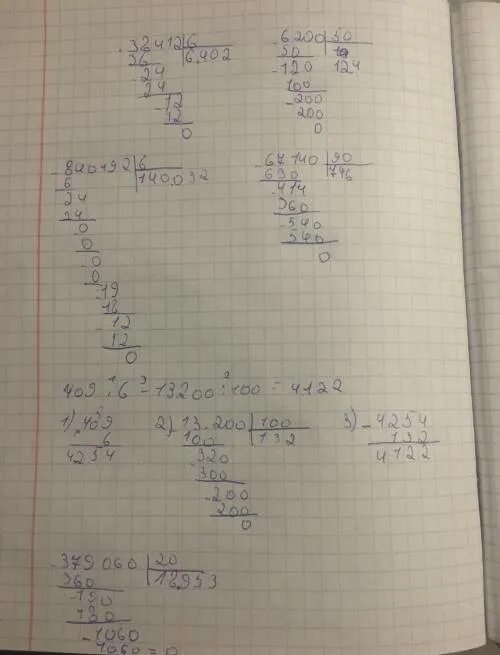 38412 | 6
36 6.402
- 24
24
- 12
12
0
- 6200 | 50
50 124
- 120
100
- 200
200
0
- 840192 | 6
6 140.032
24
24
- 0
0
- 0
0
- 19
18
12
12
0
- 67140 | 90
630 746
- 414
360
- 540
540
0
409 · 6 - 13200 : 100 = 4122
1) 409
6
4254
2) 13.200 | 100
100 132
- 320
300
- 200
200
0
3) - 4254
132
4122
- 379060 | 20
360 18953
- 190
180
- 1060
1060 = 0